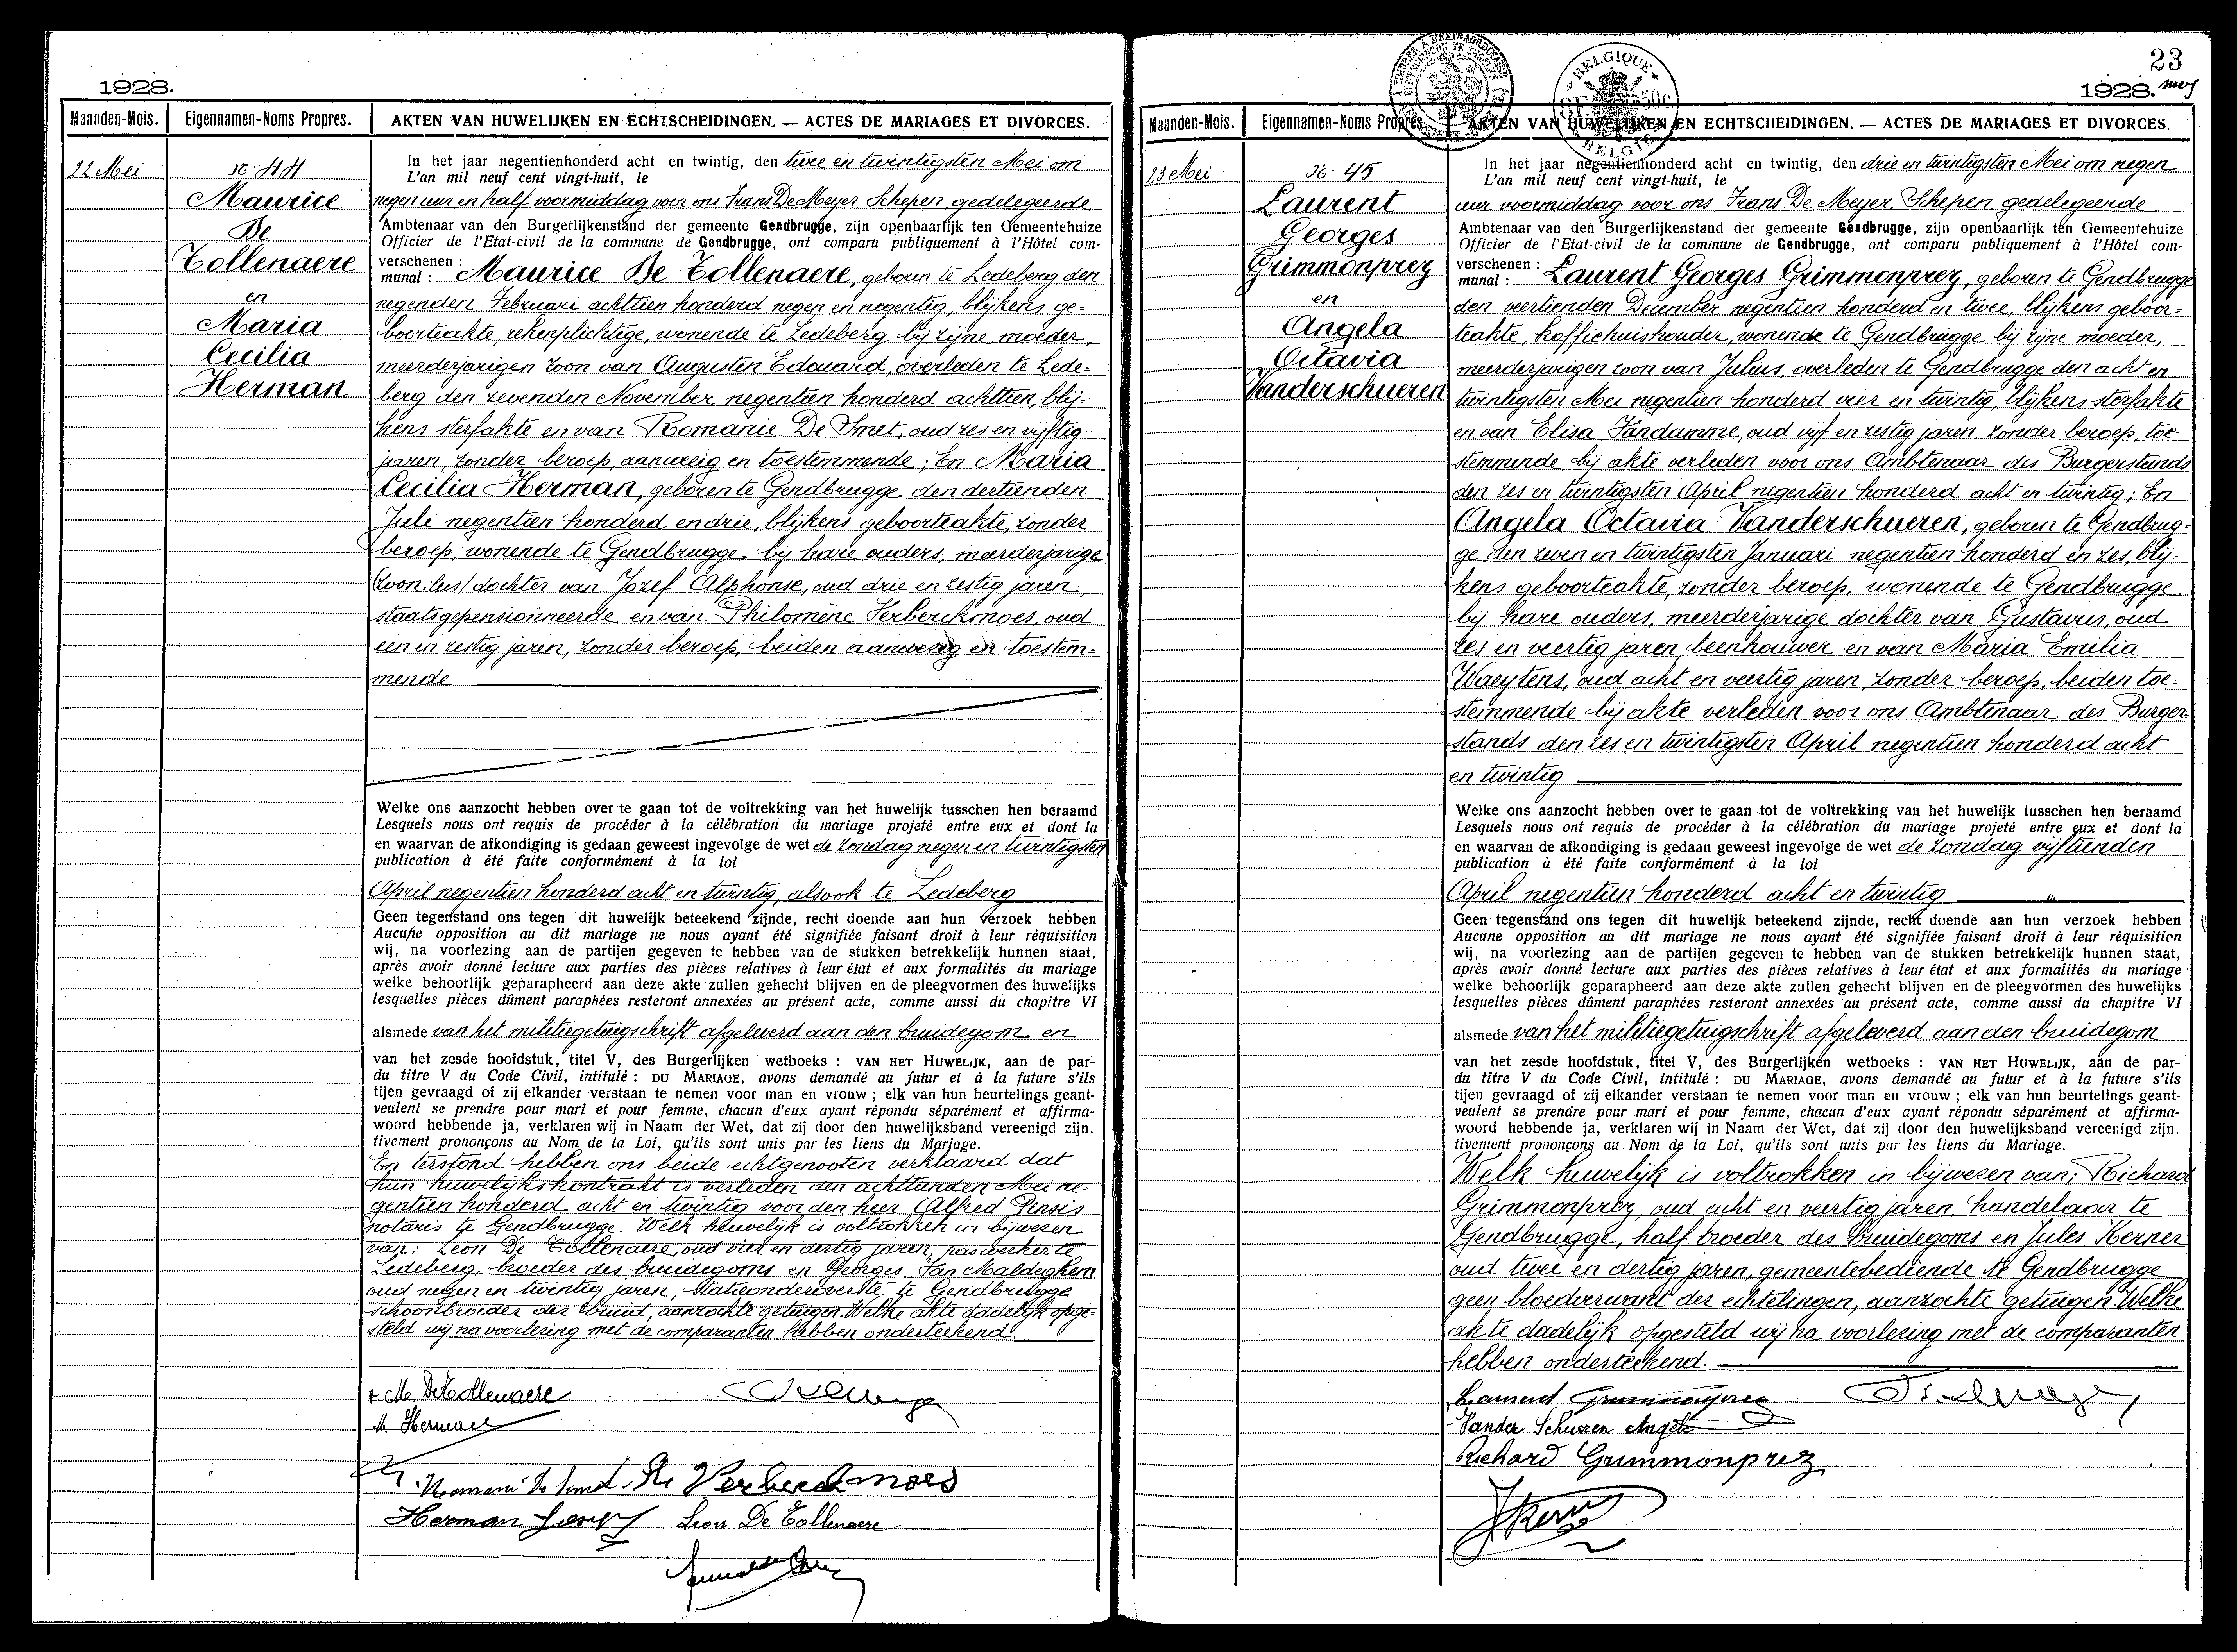 1928.
Maanden-Mois.
Eigennamen-Noms Propres.
AKTEN VAN HUWELIJKEN EN ECHTSCHEIDINGEN. — ACTES DE MARIAGES ET DIVORCES.
22 Mei
N: 44
Maurice
De
Tollenaere
en
Maria
Cecilia
Herman
In het jaar negentienhonderd acht en twintig, den twee en twintigsten Mei om
L'an mil neuf cent vingt-huit, le
negen uur en half voormiddag voor ons Frans De Meyer, Schepen, gedelegeerde
Ambtenaar van den Burgerlijkenstand der gemeente Gendbrugge, zijn openbaarlijk ten Gemeentehuize
Officier de l'Etat-civil de la commune de Gendbrugge, ont comparu publiquement à l'Hôtel com-
verschenen :
munal : Maurice De Tollenaere, geboren te Ledeberg den
negenden Februari achttien honderd negen en negentig, blijkens ge-
boorteakte, rekenplichtige, wonende te Ledeberg bij zijne moeder,
meerderjarigen zoon van Augustin Edouard, overleden te Lede-
berg den zevenden November negentien honderd achttien, blij-
kens sterfakte en van Romanie De Smet, oud zes en vijftig
jaren, zonder beroep, aanwezig en toestemmende; En Maria
Cecilia Herman, geboren te Gendbrugge den dertienden
Juli negentien honderd en drie, blijkens geboorteakte, zonder
beroep, wonende te Gendbrugge bij hare ouders, meerderjarige
(zoon:lees) dochter van Jozef Alphonse, oud drie en zestig jaren,
staatsgepensionneerde en van Philomène Verberckmoes, oud
een en zestig jaren, zonder beroep, beiden aanwezig en toestem-
mende
Welke ons aanzocht hebben over te gaan tot de voltrekking van het huwelijk tusschen hen beraamd
Lesquels nous ont requis de procéder à la célébration du mariage projeté entre eux et dont la
en waarvan de afkondiging is gedaan geweest ingevolge de wet de zondag negen en twintigsten
publication à été faite conformément à la loi
April negentien honderd acht en twintig, alsook te Ledeberg
Geen tegenstand ons tegen dit huwelijk beteekend zijnde, recht doende aan hun verzoek hebben
Aucune opposition au dit mariage ne nous ayant été signifiée faisant droit à leur réquisition
wij, na voorlezing aan de partijen gegeven te hebben van de stukken betrekkelijk hunnen staat,
après avoir donné lecture aux parties des pièces relatives à leur état et aux formalités du mariage
welke behoorlijk geparapheerd aan deze akte zullen gehecht blijven en de pleegvormen des huwelijks
lesquelles pièces dûment paraphées resteront annexées au présent acte, comme aussi du chapitre VI
alsmede van het militiegetuigschrift afgeleverd aan den bruidegom en
van het zesde hoofdstuk, titel V, des Burgerlijken wetboeks : VAN HET HUWELIJK, aan de par-
du titre V du Code Civil, intitulé : DU MARIAGE, avons demandé au futur et à la future s'ils
tijen gevraagd of zij elkander verstaan te nemen voor man en vrouw ; elk van hun beurtelings geant-
veulent se prendre pour mari et pour femme, chacun d'eux ayant répondu séparément et affirma-
woord hebbende ja, verklaren wij in Naam der Wet, dat zij door den huwelijksband vereenigd zijn.
tivement prononçons au Nom de la Loi, qu'ils sont unis par les liens du Mariage.
En terstond hebben ons beide echtgenooten verklaard dat
hun huwelijkskontrakt is verleden den achttienden Mei ne-
gentien honderd acht en twintig voor den heer Alfred Pensis
notaris te Gendbrugge. Welk huwelijk is voltrokken in bijwezen
van: Leon De Tollenaere, oud vier en dertig jaren, paswerker te
Ledeberg, broeder des bruidegoms en Georges Van Maldeghem
oud negen en twintig jaren, Statieonderoverste te Gendbrugge
schoonbroeder der bruid, aanzochte getuigen. Welke akte dadelijk opge-
steld wij na voorlezing met de comparanten hebben onderteekend.
M. De Tollenaere
M. Herman
Romanie De Smet. Verberckmoes
Herman Leon De Tollenaere
23
1928.
Maanden-Mois.
Eigennamen-Noms Propres.
AKTEN VAN HUWELIJKEN EN ECHTSCHEIDINGEN. — ACTES DE MARIAGES ET DIVORCES.
BELGIQUE
BELGIË
23 Mei
N: 45
Laurent
Georges
Grimmonprez
en
Angela
Octavia
Vanderschueren
In het jaar negentienhonderd acht en twintig, den drie en twintigsten Mei om negen
L'an mil neuf cent vingt-huit, le
uur voormiddag voor ons Frans De Meyer, Schepen, gedelegeerde
Ambtenaar van den Burgerlijkenstand der gemeente Gendbrugge, zijn openbaarlijk ten Gemeentehuize
Officier de l'Etat-civil de la commune de Gendbrugge, ont comparu publiquement à l'Hôtel com-
verschenen :
munal : Laurent Georges Grimmonprez, geboren te Gendbrugge
den veertienden December negentien honderd en twee, blijkens geboor-
teakte, koffiehuishouder, wonende te Gendbrugge bij zijne moeder,
meerderjarigen zoon van Julius, overleden te Gendbrugge den acht en
twintigsten Mei negentien honderd vier en twintig, blijkens sterfakte
en van Elisa Vandamme, oud vijf en zestig jaren, zonder beroep, toe-
stemmende bij akte verleden voor ons Ambtenaar des Burgerstands
den zes en twintigsten April negentien honderd acht en twintig; En
Angela Octavia Vanderschueren, geboren te Gendbrug-
ge den zeven en twintigsten Januari negentien honderd en zes, blij-
kens geboorteakte, zonder beroep, wonende te Gendbrugge
bij hare ouders, meerderjarige dochter van Gustavus, oud
zes en veertig jaren, beenhouwer en van Maria Emilia
Waeytens, oud acht en veertig jaren, zonder beroep, beiden toe-
stemmende bij akte verleden voor ons Ambtenaar des Burger-
stands den zes en twintigsten April negentien honderd acht
en twintig
Welke ons aanzocht hebben over te gaan tot de voltrekking van het huwelijk tusschen hen beraamd
Lesquels nous ont requis de procéder à la célébration du mariage projeté entre eux et dont la
en waarvan de afkondiging is gedaan geweest ingevolge de wet de zondag vijftienden
publication à été faite conformément à la loi
April negentien honderd acht en twintig
Geen tegenstand ons tegen dit huwelijk beteekend zijnde, recht doende aan hun verzoek hebben
Aucune opposition au dit mariage ne nous ayant été signifiée faisant droit à leur réquisition
wij, na voorlezing aan de partijen gegeven te hebben van de stukken betrekkelijk hunnen staat,
après avoir donné lecture aux parties des pièces relatives à leur état et aux formalités du mariage
welke behoorlijk geparapheerd aan deze akte zullen gehecht blijven en de pleegvormen des huwelijks
lesquelles pièces dûment paraphées resteront annexées au présent acte, comme aussi du chapitre VI
alsmede van het militiegetuigschrift afgeleverd aan den bruidegom
van het zesde hoofdstuk, titel V, des Burgerlijken wetboeks : VAN HET HUWELIJK, aan de par-
du titre V du Code Civil, intitulé : DU MARIAGE, avons demandé au futur et à la future s'ils
tijen gevraagd of zij elkander verstaan te nemen voor man en vrouw ; elk van hun beurtelings geant-
veulent se prendre pour mari et pour femme, chacun d'eux ayant répondu séparément et affirma-
woord hebbende ja, verklaren wij in Naam der Wet, dat zij door den huwelijksband vereenigd zijn.
tivement prononçons au Nom de la Loi, qu'ils sont unis par les liens du Mariage.
Welk huwelijk is voltrokken in bijwezen van; Richard
Grimmonprez, oud acht en veertig jaren, handelaar te
Gendbrugge, half broeder des bruidegoms en Jules Kerner
oud twee en dertig jaren, gemeentebediende te Gendbrugge
geen bloedverwant der echtelingen, aanzochte getuigen. Welke
akte dadelijk opgesteld wij na voorlezing met de comparanten
hebben onderteekend.
Laurent Grimmonprez
Vander Schueren Angela
Richard Grimmonprez